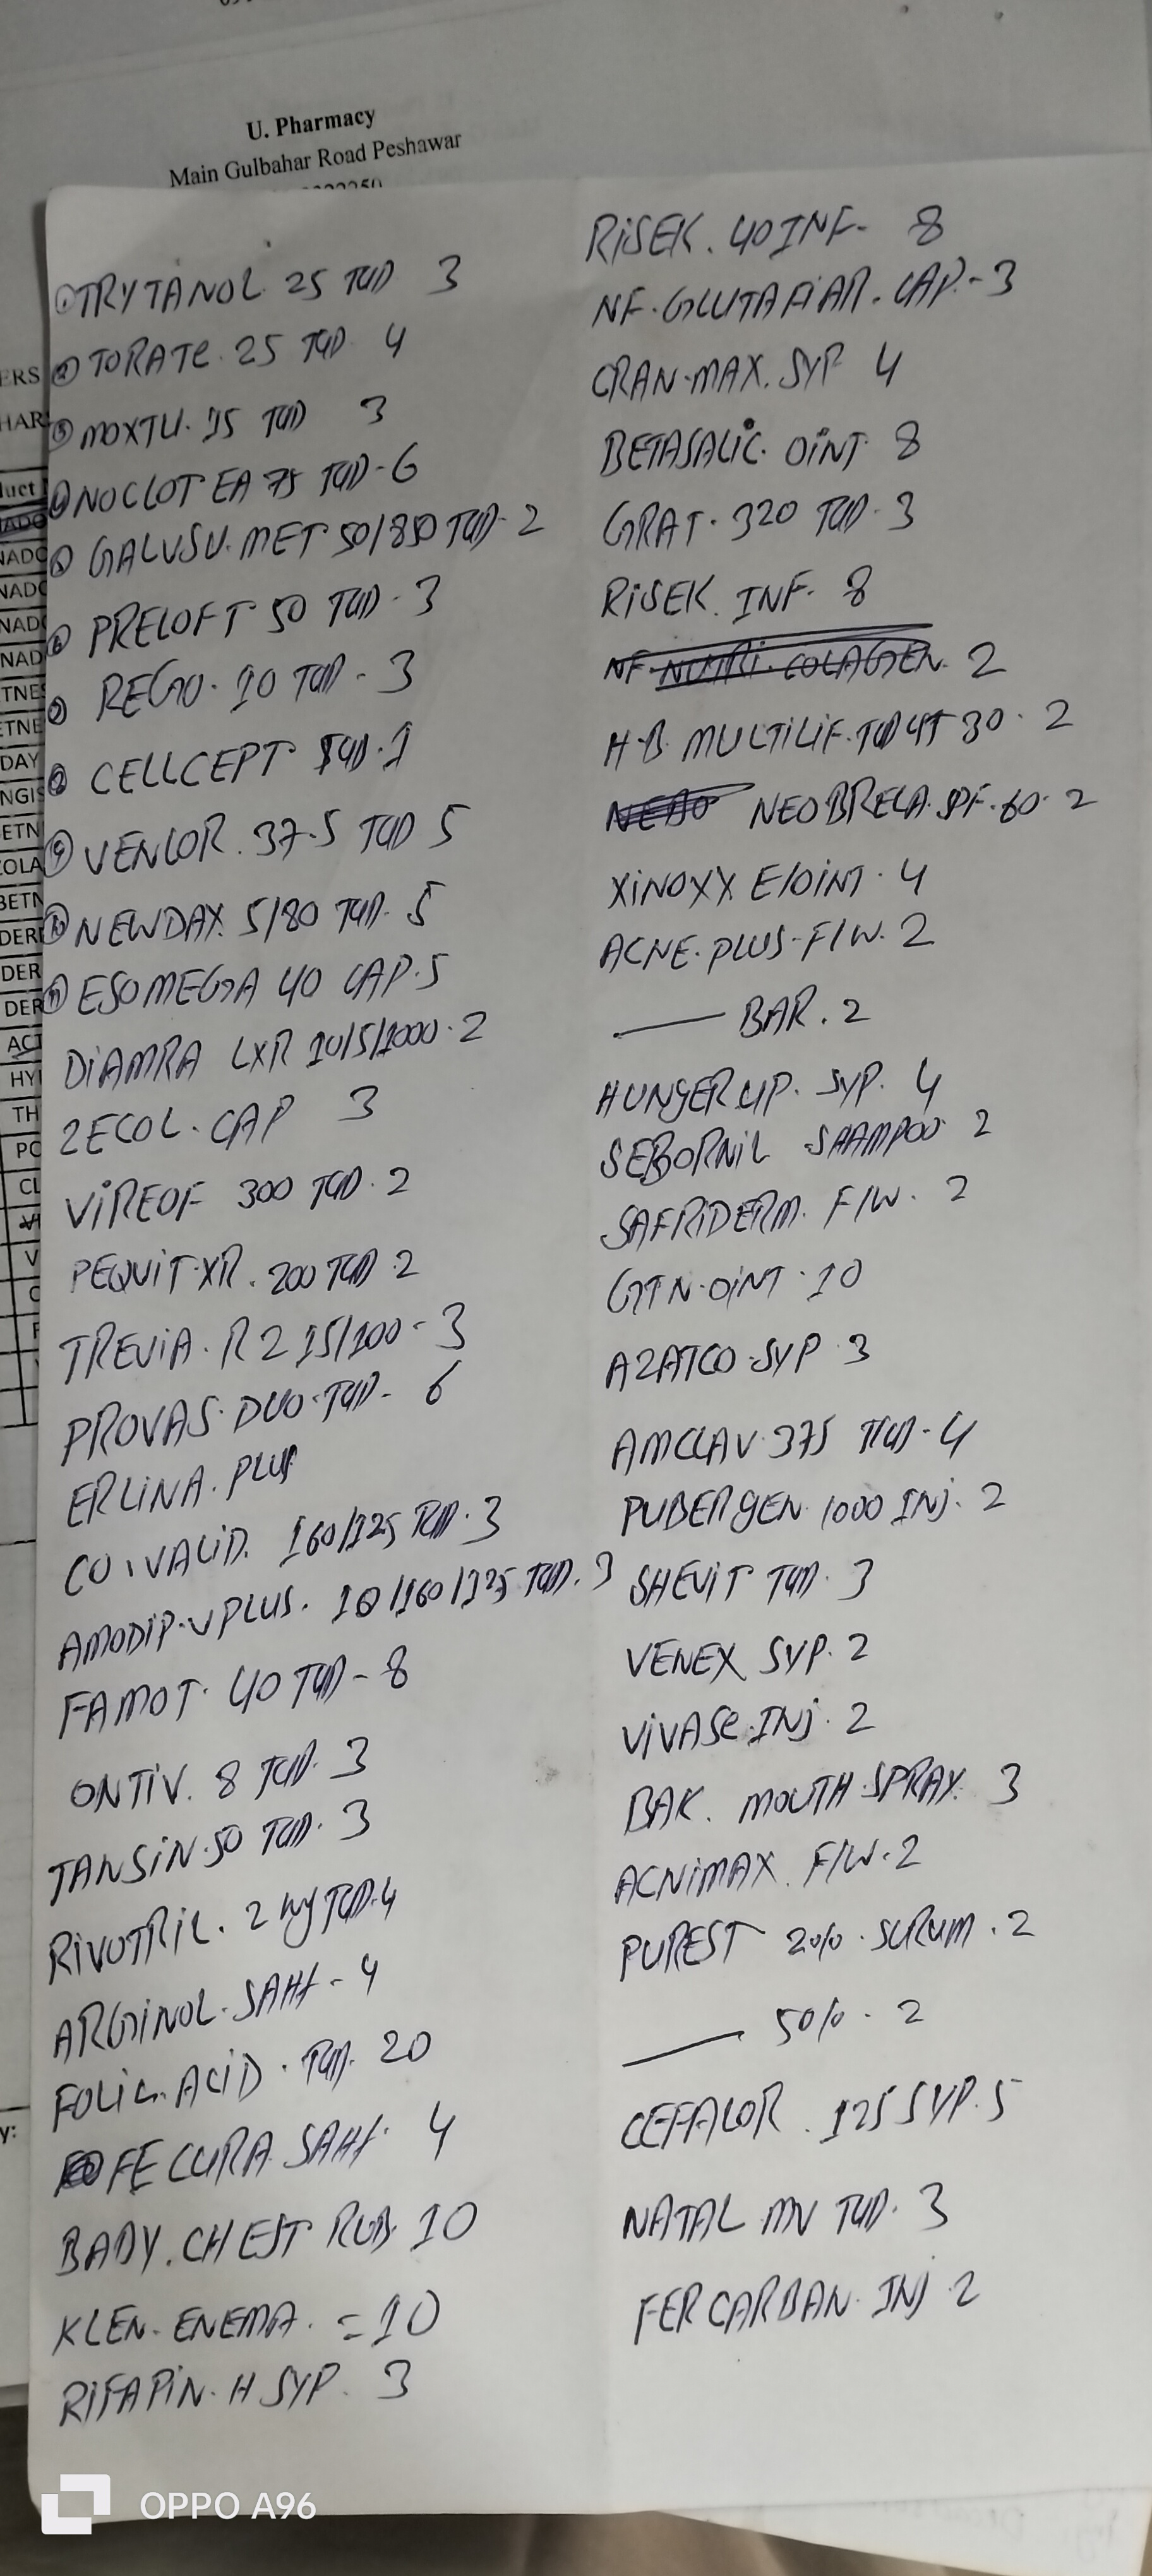 U. Pharmacy
Main Gulbahar Road Peshawar
① TRYTANOL 25 TAB 3
② TORATE 25 TAB 4
③ MOXTU. 15 TAB 3
④ NOCLOT EA 75 TAB - 6
⑤ GALVSU. MET 50/850 TAB - 2
⑥ PRELOFT 50 TAB - 3
⑦ REGO. 10 TAB - 3
⑧ CELLCEPT TAB. 1
⑨ VENLOR. 37.5 TAB 5
⑩ NEWDAX 5/80 TAB. 5
⑪ ESOMEGA 40 CAP. 5
DIAMRA LXR 10/5/1000. 2
ZECOL. CAP 3
VIREOF 300 TAB. 2
PEQUIT. XR. 200 TAB 2
TREVIA. R 2 15/100 - 3
PROVAS. DUO. TAB - 6
ERLINA. PLUS
CO. VALID. 160/125 TAB. 3
AMODIP. V PLUS. 10/160/125 TAB. 3
FAMOT. 40 TAB - 8
ONTIV. 8 TAB. 3
TANSIN. 50 TAB. 3
RIVOTRIL. 2 mg TAB. 4
ARGINOL. SAHt - 4
FOLIC. ACID. TAB. 20
FE CURA SAHt. 4
BABY. CHEST RUB. 10
KLEN. ENEMA. = 10
RIFAPIN. H SYP. 3
RISEK. 40 INF - 8
NF. GLUTAFIAR. CAP. - 3
CRAN-MAX. SYP 4
BETASALIC. OINT 8
GRAT. 320 TAB. 3
RISEK. INF. 8
NF. NUTRI. COLAGEN. 2
H.B. MULTILIF. TAB 30. 2
NEOBRELA. SPF. 60. 2
XINOXX E/OINT. 4
ACNE. PLUS - F/W. 2
—— BAR. 2
HUNGER UP. SYP. 4
SEBORNIL SHAMPOO 2
SAFRIDERM. F/W. 2
GTN. OINT. 10
AZATCO. SYP 3
AMCLAV. 375 TAB - 4
PUBERGEN. 1000 INJ. 2
SHEVIT TAB. 3
VENEX SYP. 2
VIVASE. INJ. 2
BAK. MOUTH. SPRAY. 3
ACNIMAX. F/W. 2
PUREST 20%. SURUM. 2
—— 50%. 2
CEFALOR. 125 SYP. 5
NATAL MV TAB. 3
FERCARBAN. INJ 2
OPPO A96